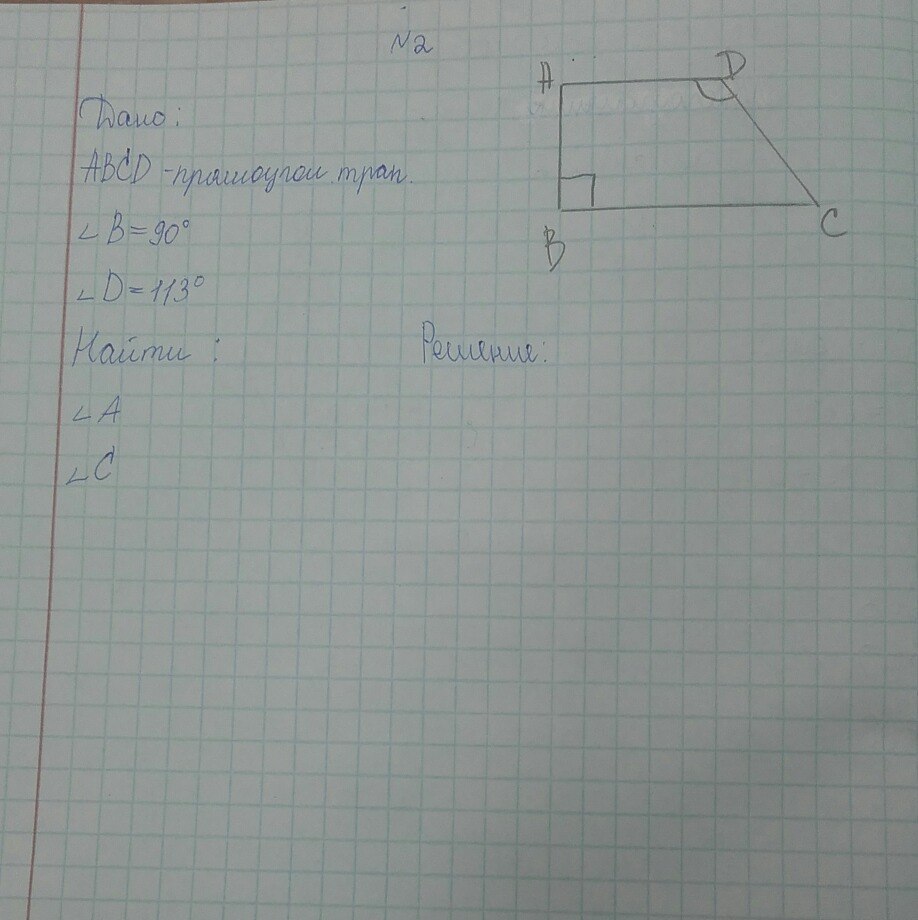 N2
Дано:
ABCD - прямоугол. трап.
∠B=90°
∠D=113°
Найти:
Решение:
∠A
∠C
A
D
B
C